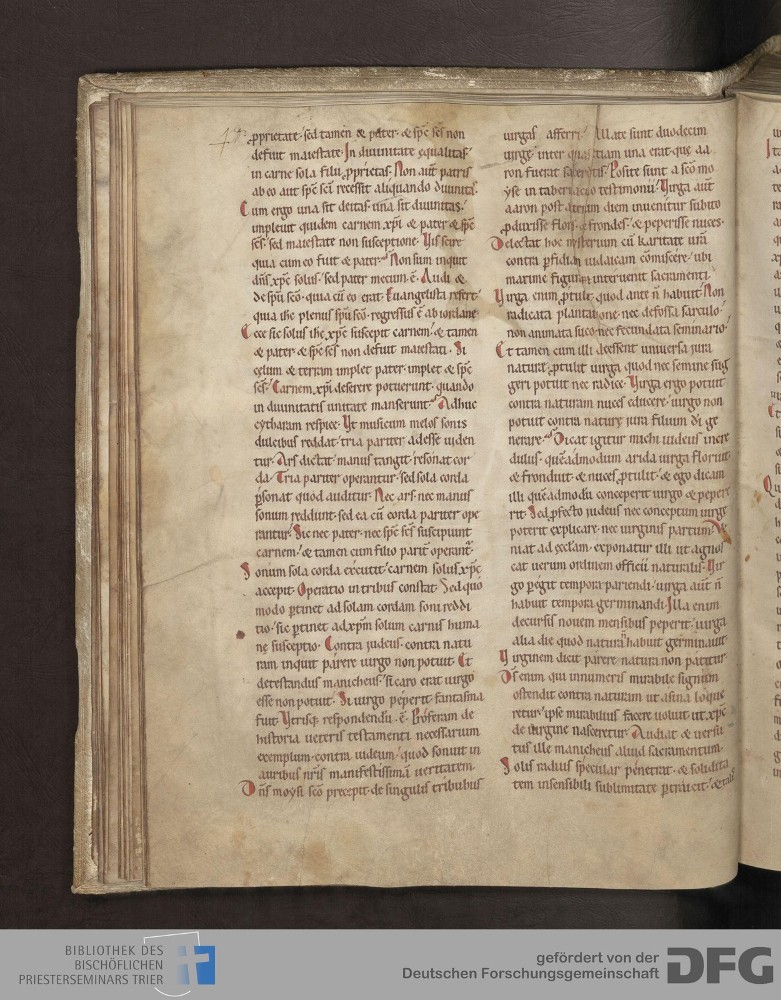 ꝓprietate· sed tamen & pater· & spc scs non
defuit maiestate· In diuinitate equalitas·
in carne sola filii ꝓprietas· Non aut patris
ab eo aut spc sci recessit aliquando diuinitas
Cum ergo una sit deitas· una sit diuinitas·
impleuit quidem carnem xpi & pater & spc
scs· sed maiestate non susceptione· Vis scire
quia cum eo fuit & pater· Non sum inquit
dns xpc solus· sed pater mecum e· Audi &
de spu sco· quia cu eo erat· Euangelista refert·
quia ihc plenus spu sco· regressus e ab iordane
Ecce sic solus ihc xpc suscepit carnem· & tamen
& pater & spc scs non defuit maiestati· Si
celum & terram implet pater· implet & spc
scs· Carnem xpi deserere potuerunt· quando
in diuinitatis unitate manserunt· Adhuc
cytharam respice· Vt musicum melos sonis
dulcibus reddat· tria pariter adesse uiden
tur· Ars dictat· manus tangit· resonat cor
da· Tria pariter operantur· sed sola corda
ꝑsonat quod auditur· Nec ars· nec manus
sonum reddunt· sed ea cu corda pariter ope
rantur· Sic nec pater· nec spc scs suscipiunt
carnem· & tamen cum filio parit operant·
Sonum sola corda excutit· carnem solus xpc
accepit· Operatio in tribus constat· Sed quo
modo ꝑtinet ad solam cordam soni reddi
tio· sic ꝑtinet ad xpm solum carnis huma
ne susceptio· Contra iudeus· contra natu
ram inquit parere uirgo non potuit· Et
detestandus manicheus· si caro erat uirgo
esse non potuit· Si uirgo peperit· fantasma
fuit· Vtrisq; respondendu· e· Proferam de
historia ueteris testamenti necessarium
exemplum· contra iudeum· quod sonuit in
auribus nris manifestissima ueritatem·
Dns moysi sco precepit· de singulis tribubus
uirgas afferri· Allate sunt duodecim
uirge· inter quas etiam una erat· que aa
ron fuerat sacerdotis· Posite sunt a sco mo
yse in tabernaculo testimonii· Virga aut
aaron post alterum diem inuenitur subito
ꝓduxisse flores & frondes· & peperisse nuces·
Delectat hoc misterium cu karitate ura
contra ꝑfidia iudaicam comiscere· ubi
maxime figura interuenit sacramenti·
Virga enim ꝓtulit· quod ante n habuit· Non
radicata plantatione· nec defossa sarculo·
non animata suco· nec fecundata seminario·
Et tamen cum illi deessent uniuersa iura
nature· ꝓtulit uirga quod nec semine sug
geri potuit nec radice· Virga ergo potuit
contra naturam nuces educere· uirgo non
potuit contra nature iura filium di ge
nerare· Dicat igitur michi iudeus incre
dulus· queadmodum arida uirga floruit
& fronduit· & nuces ꝓtulit· & ego dicam
illi queadmodu conceperit uirgo & pepere
rit· Sed ꝓfecto iudeus nec conceptum uirge
poterit explicare· nec uirginis partum· Ve
niat ad ecclam· exponatur illi ut agnos
cat uerum ordinem officii naturalis· Vir
go ꝑegit tempora pariendi· uirga aut n
habuit tempora germinandi· Illa enim
decursis nouem mensibus peperit· uirga
alia die quod natura habuit germinauit·
Virginem dicit parere natura non patitur·
Ds enim qui innumeris mirabile signum
ostendit contra naturam ut asina loque
retur· ipse mirabilius facere uoluit· ut xpc
de uirgine nasceretur· Audiat & uersu
tus ille manicheus aliud sacramentum·
Solis radius specular penetrat· & solidita
tem insensibili sublimitate ꝑtransit· & tali
BIBLIOTHEK DES
BISCHÖFLICHEN
PRIESTERSEMINARS TRIER
gefördert von der
Deutschen Forschungsgemeinschaft
DFG